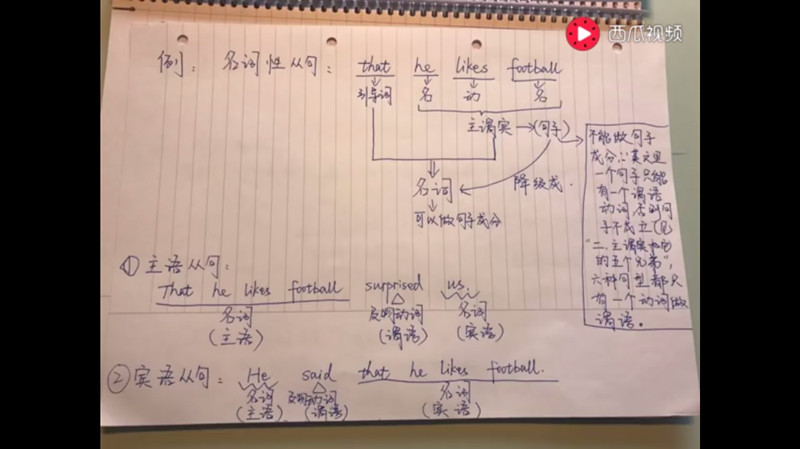 西瓜视频
例: 名词性从句: that he likes football
引导词 名 动 名
主谓宾→(句子)
名词
降级成.
可以做句子成分
不能做句子
成分∵英文里
一个句子只能
有一个谓语
动词否则句
子不成立(见
"二.主谓宾和它
的五个兄弟",
六种句型都只
有一个动词做
谓语.
① 主语从句:
That he likes football surprised us.
名词 及物动词 名词
(主语) (谓语) (宾语)
② 宾语从句: He said that he likes football.
名词 及物动词 名词
(主语) (谓语) (宾语)